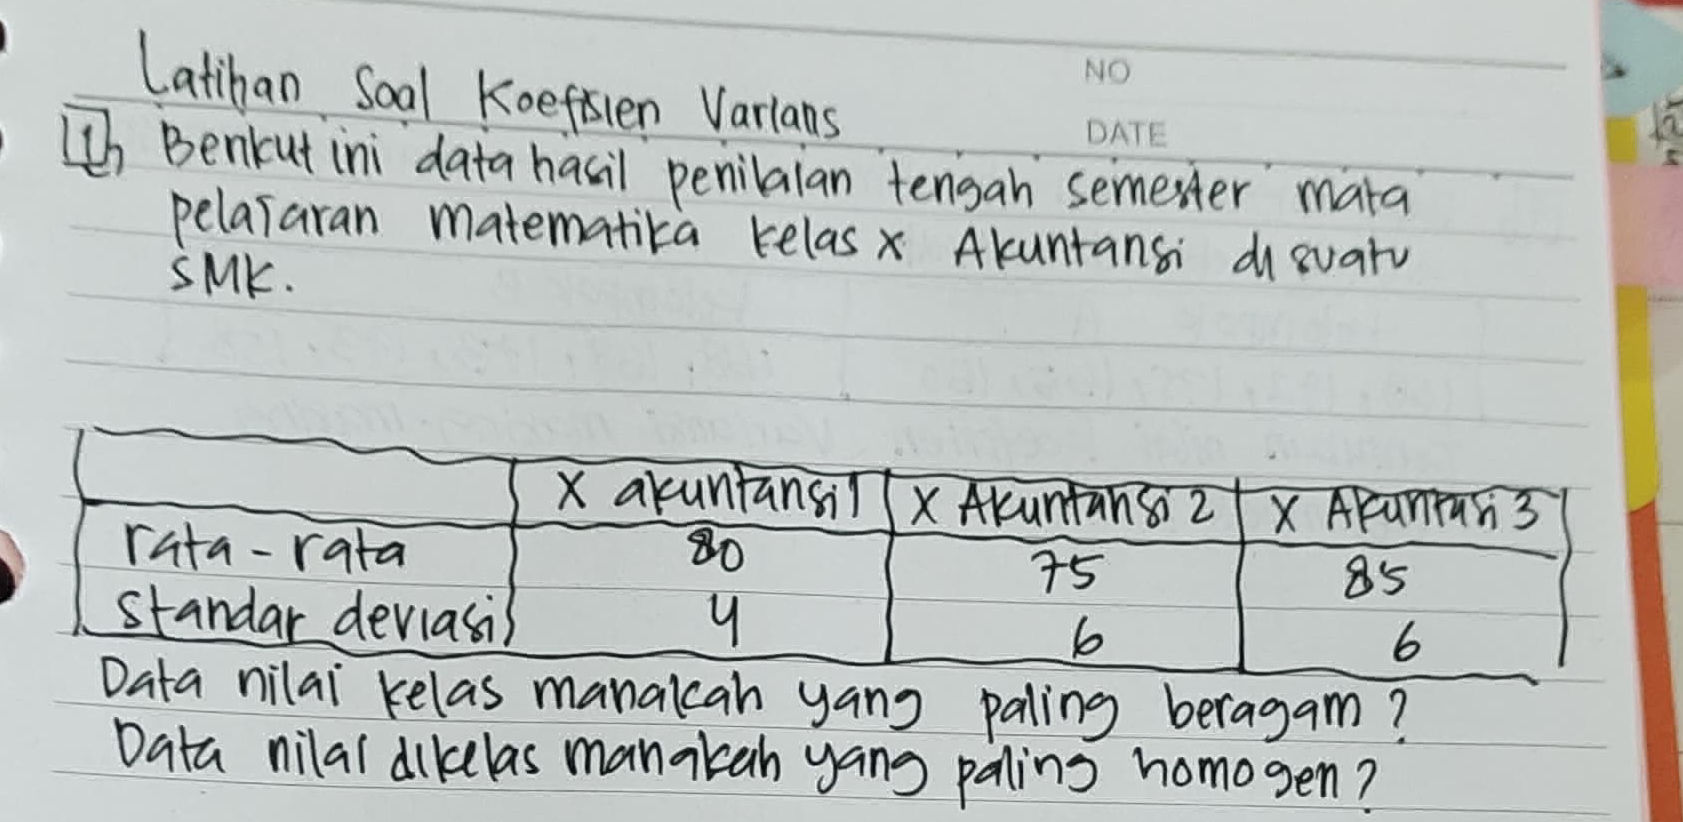 NO
DATE
Latihan Soal Koefisien Varians
1, Berikut ini data hasil penilaian tengah semester mata
pelajaran matematika kelas X Akuntansi di suatu
SMK.
X akuntansi 1 X Akuntansi 2 X Akuntasi 3
rata-rata 80 75 85
standar deviasi 4 6 6
Data nilai kelas manakah yang paling beragam?
Data nilai dikelas manakah yang paling homogen?